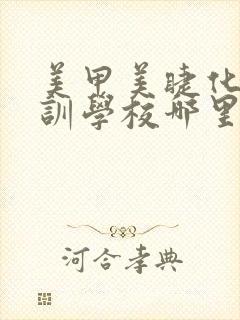 美甲美睫化
訓學校哪里
河合孝典